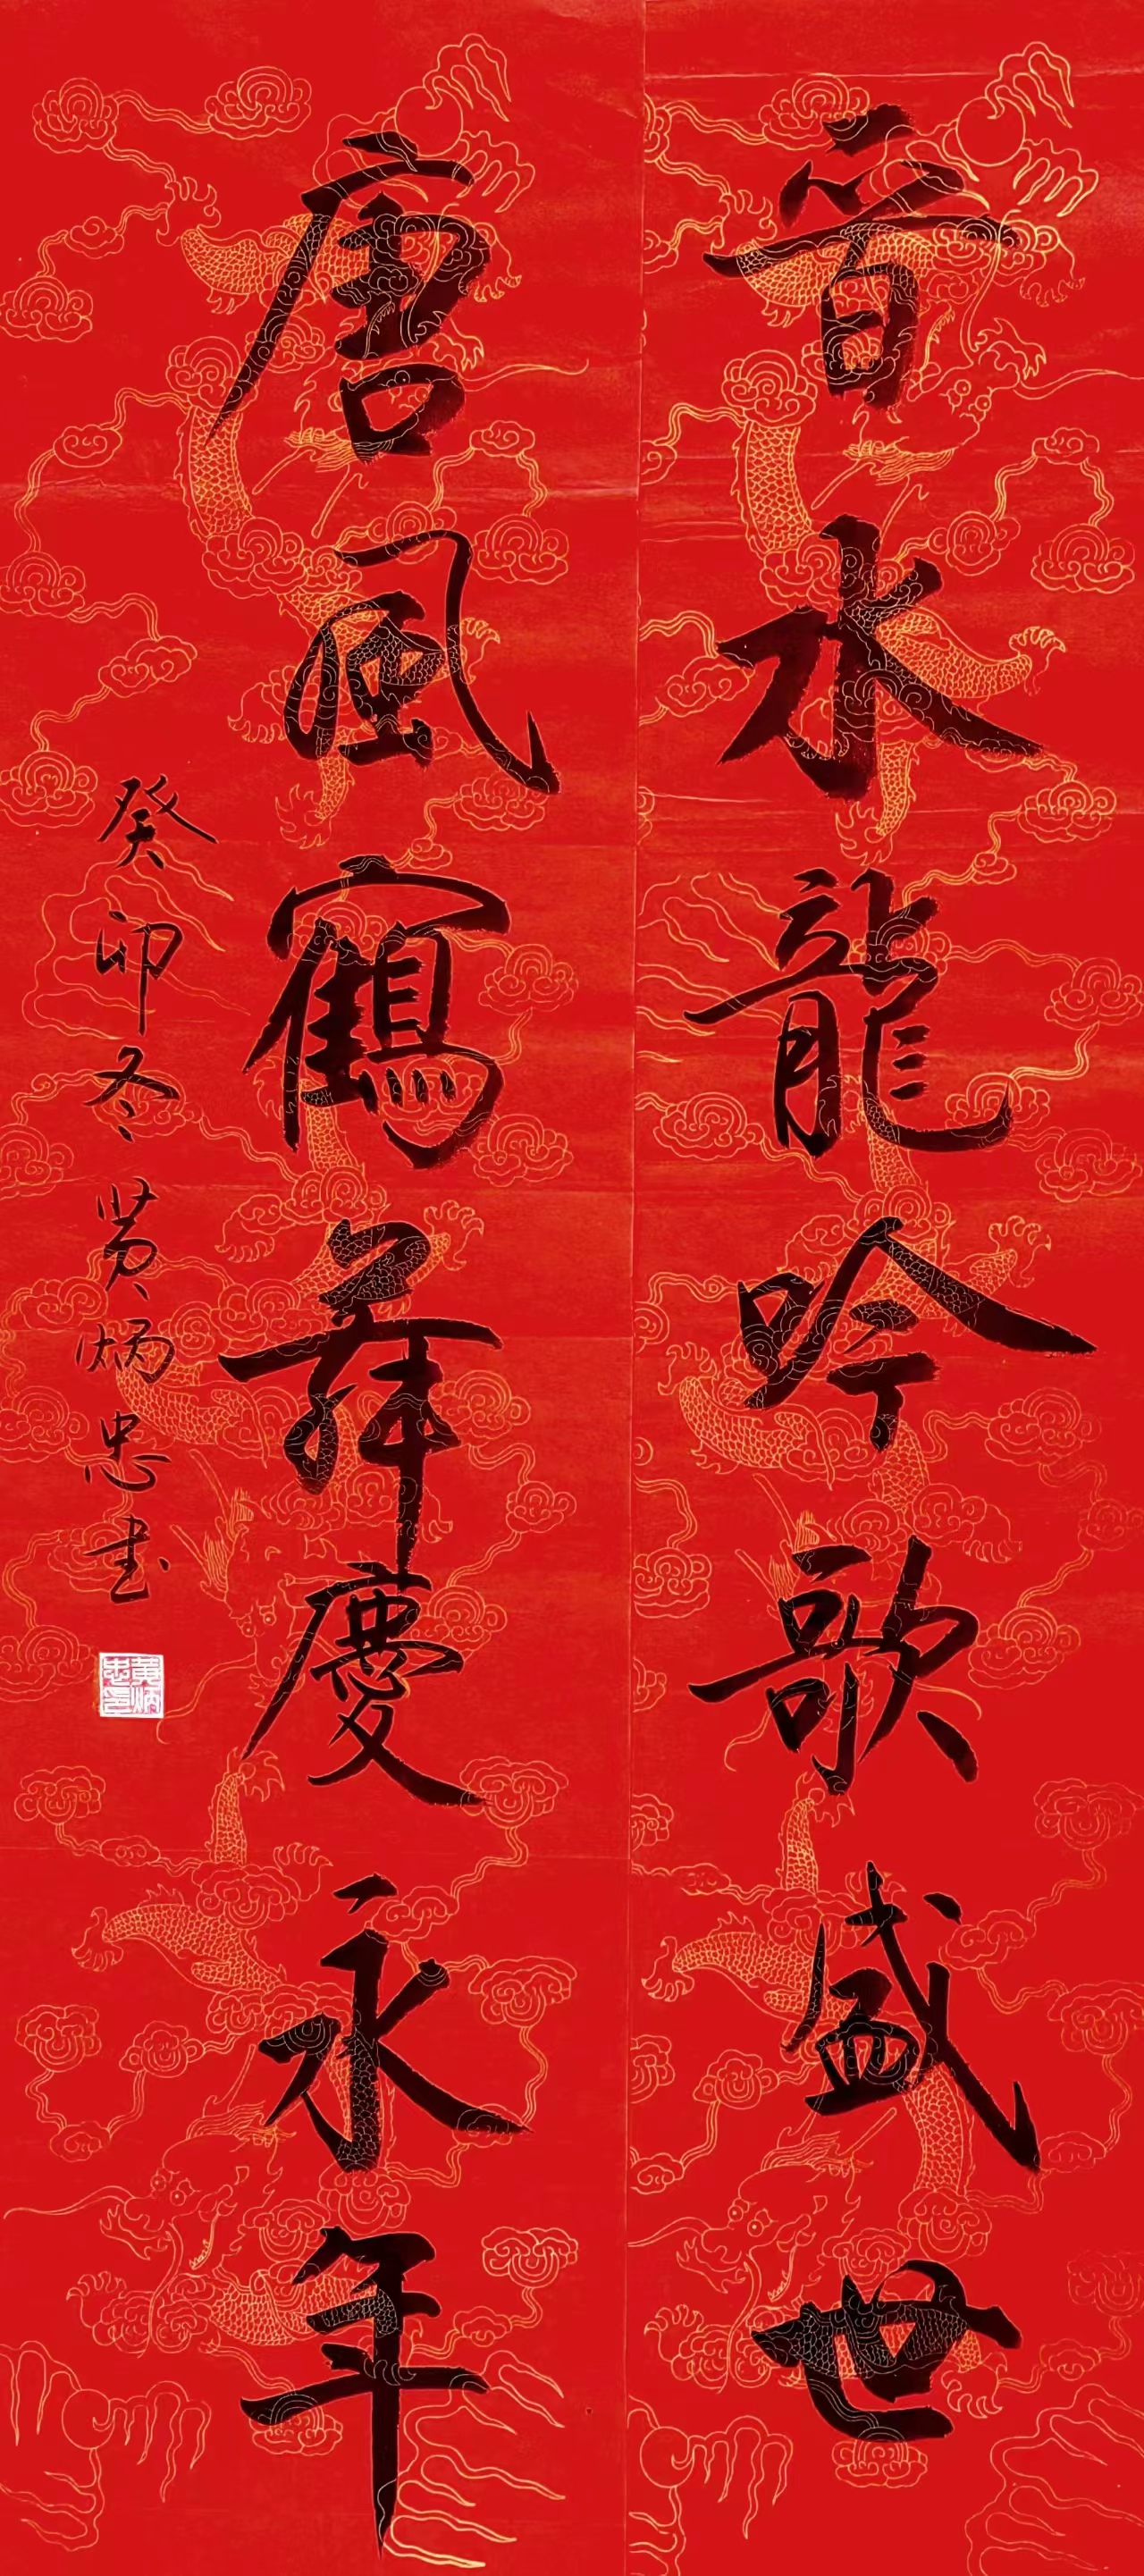 晉水龍吟歌盛世
唐風鶴舞慶永年
癸卯冬黄炳忠書
黄炳忠印